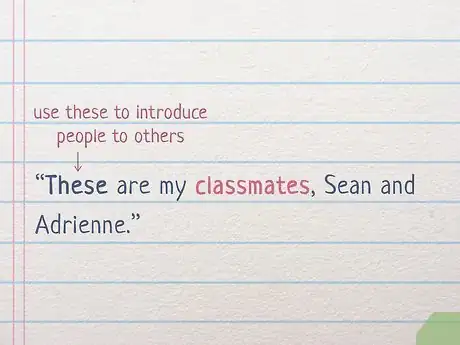 use these to introduce
people to others
“These are my classmates, Sean and
Adrienne.”